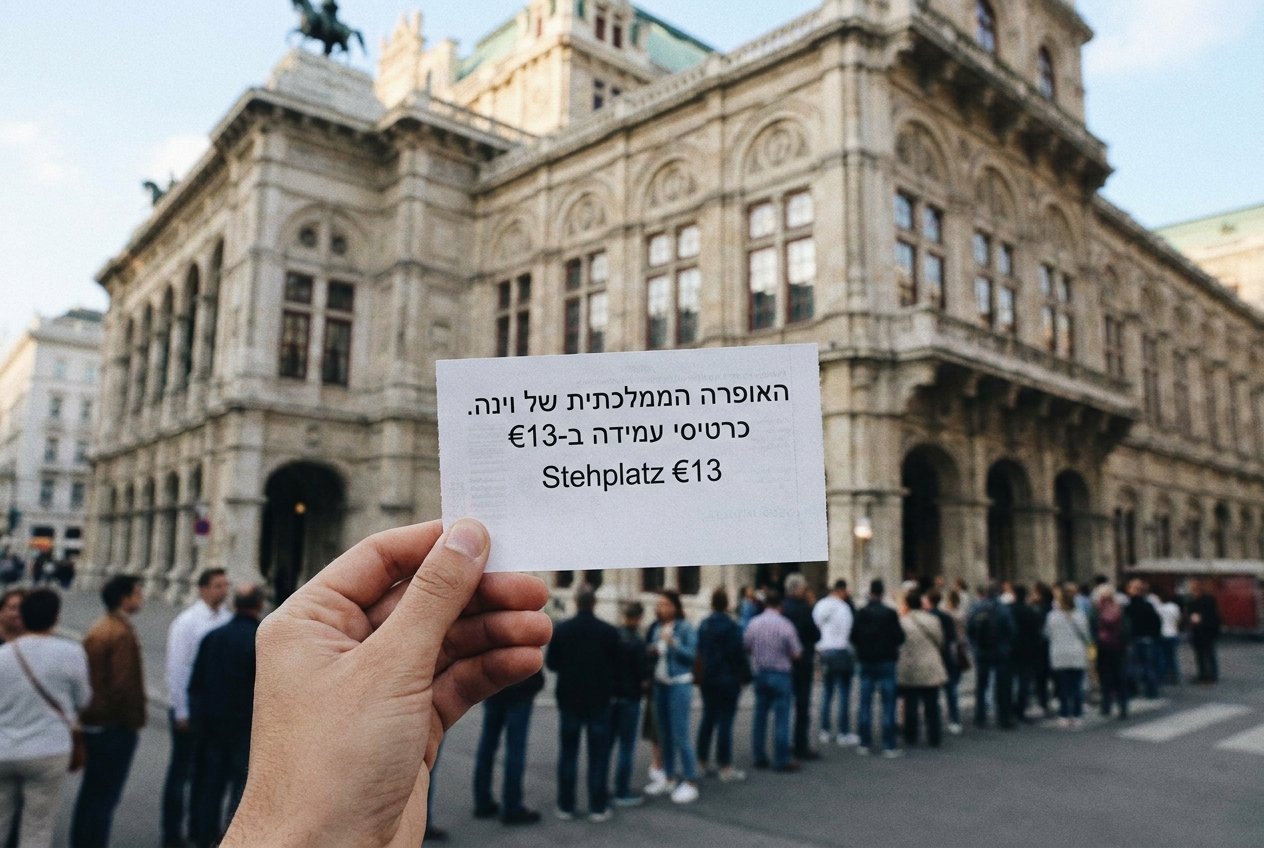 האופרה הממלכתית של וינה.
כרטיסי עמידה ב-€13
Stehplatz €13